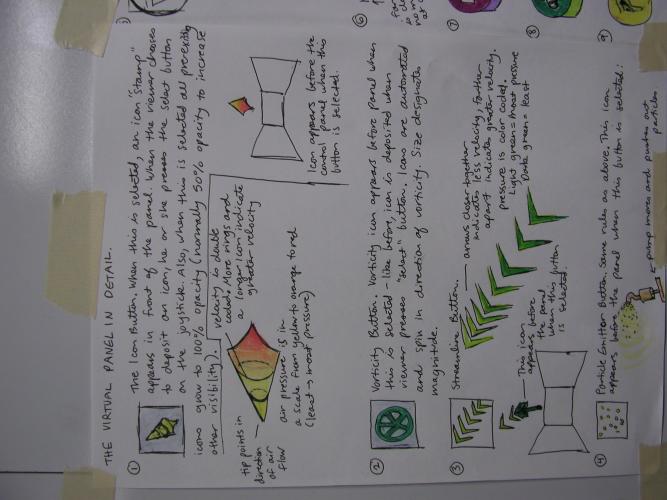 THE VIRTUAL PANEL IN DETAIL.
①
The Icon Button. When this is selected, an icon "stamp"
appears in front of the panel. When the viewer chooses
to deposit an icon, he or she presses the select button
on the joystick. Also, when this is selected all pre-existing
icons grow to 100% opacity (normally 50% opacity to increase
other visibility).
velocity is double
coded. More rings and
a longer icon indicate
greater velocity
tip points in
direction
of air
flow
air pressure is in
a scale from yellow to orange to red
(least → most pressure)
Icon appears before the
control panel when this
button is selected.
②
Vorticity Button. Vorticity icon appears before panel when
this is selected - like before, icon is deposited when
viewer presses "select" button. Icons are automated
and spin in direction of vorticity. Size designates
magnitude.
③
Streamline Button.
arrows closer together
indicates less velocity, farther
apart indicates greater velocity.
pressure is color coded.
Light green = most pressure
Dark green = least
This icon
appears before
the panel
when this button
is selected.
④
Particle Emitter Button. Same rules as above. This icon
appears before the panel when this button is selected:
pump moves and pushes out
particles
⑥
⑦
⑧
⑨